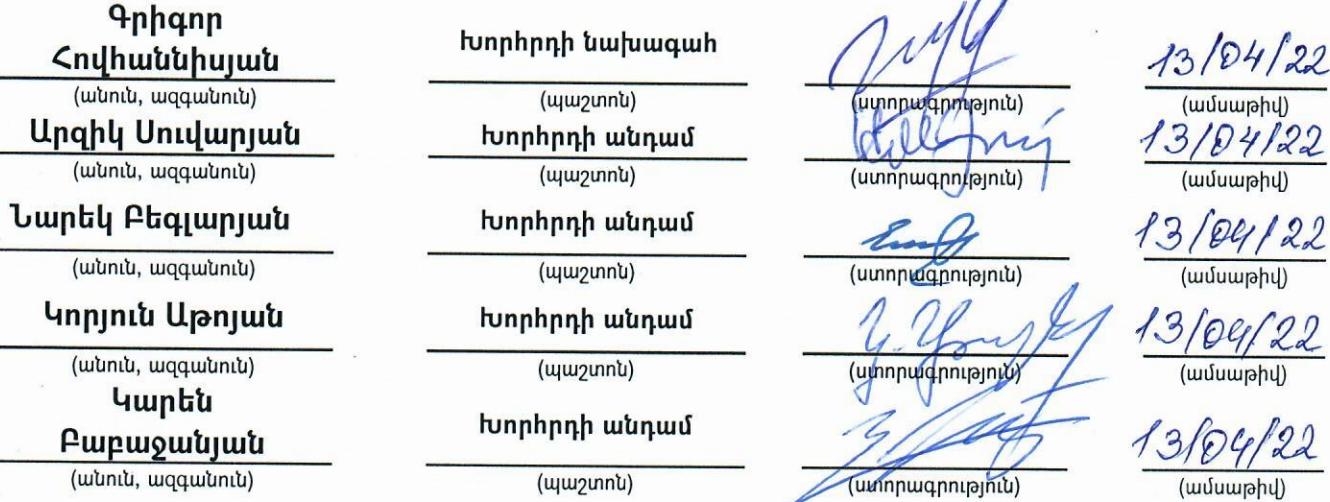 Գրիգոր
Հովհաննիսյան Խորհրդի նախագահ 13/04/22
(անուն, ազգանուն) (պաշտոն) (ստորագրություն) (ամսաթիվ)
Արզիկ Սուվարյան Խորհրդի անդամ 13/04/22
(անուն, ազգանուն) (պաշտոն) (ստորագրություն) (ամսաթիվ)
Նարեկ Բեգլարյան Խորհրդի անդամ 13/04/22
(անուն, ազգանուն) (պաշտոն) (ստորագրություն) (ամսաթիվ)
Կորյուն Աթոյան Խորհրդի անդամ 13/04/22
(անուն, ազգանուն) (պաշտոն) (ստորագրություն) (ամսաթիվ)
Կարեն
Բաբաջանյան Խորհրդի անդամ 13/04/22
(անուն, ազգանուն) (պաշտոն) (ստորագրություն) (ամսաթիվ)